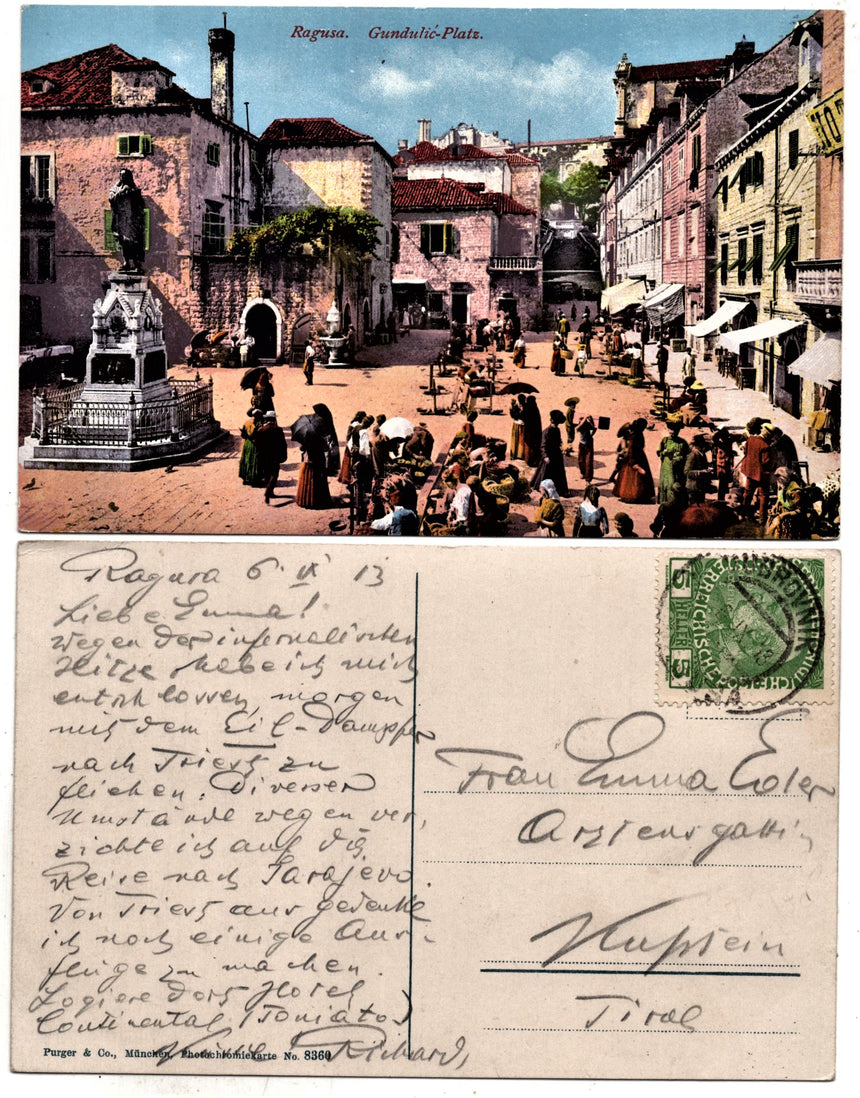 Ragusa. Gundulić-Platz.
HOT
Ragusa 6. IX 13
Liebe Emma!
wegen der infernalischen
Hitze habe ich mich
entschlossen, morgen
mit dem Eil-Dampfer
nach Triest zu
fliehen. Diverser
Umstände wegen ver,
zichte ich auf die
Reise nach Sarajevo.
Von Triest aus gedenke
ich noch einige Aus-
flüge zu machen.
Logiere dort Hotel
Continental (Toniato)
Richard,
Purger & Co., München, Photochromiekarte No. 8360
5 HELLER 5
Frau Emma Eder
Arztensgattin
Kufstein
Tirol